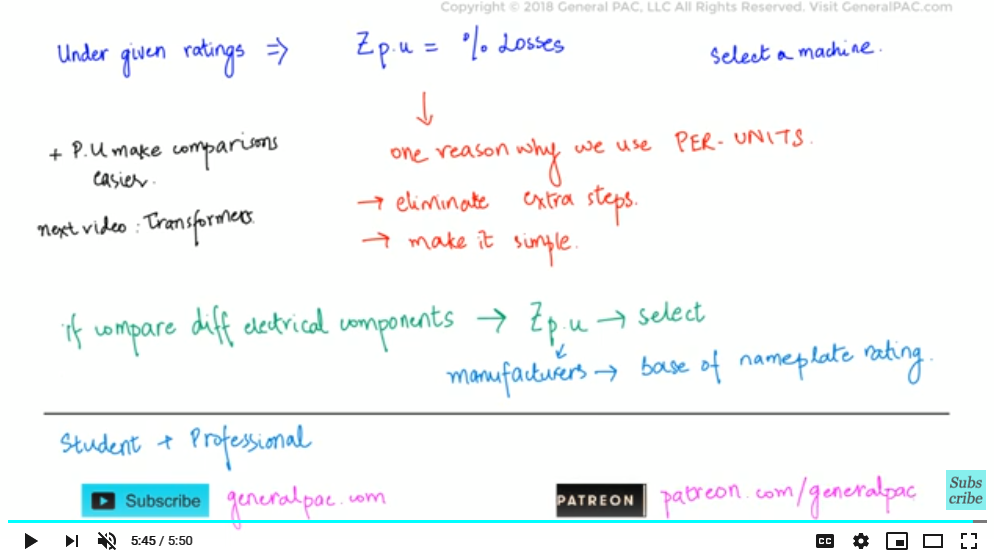 Copyright © 2018 General PAC, LLC All Rights Reserved. Visit GeneralPAC.com
Under given ratings ⇒ Zp.u = % Losses
Select a machine.
↓
+ P.U make comparisons
easier.
one reason why we use PER-UNITS.
→ eliminate extra steps.
next video : Transformers.
→ make it simple.
if compare diff electrical components → Zp.u → select
↙
manufacturers → base of nameplate rating.
Student + Professional
Subscribe generalpac.com
PATREON patreon.com/generalpac
Subs
cribe
5:45 / 5:50
CC